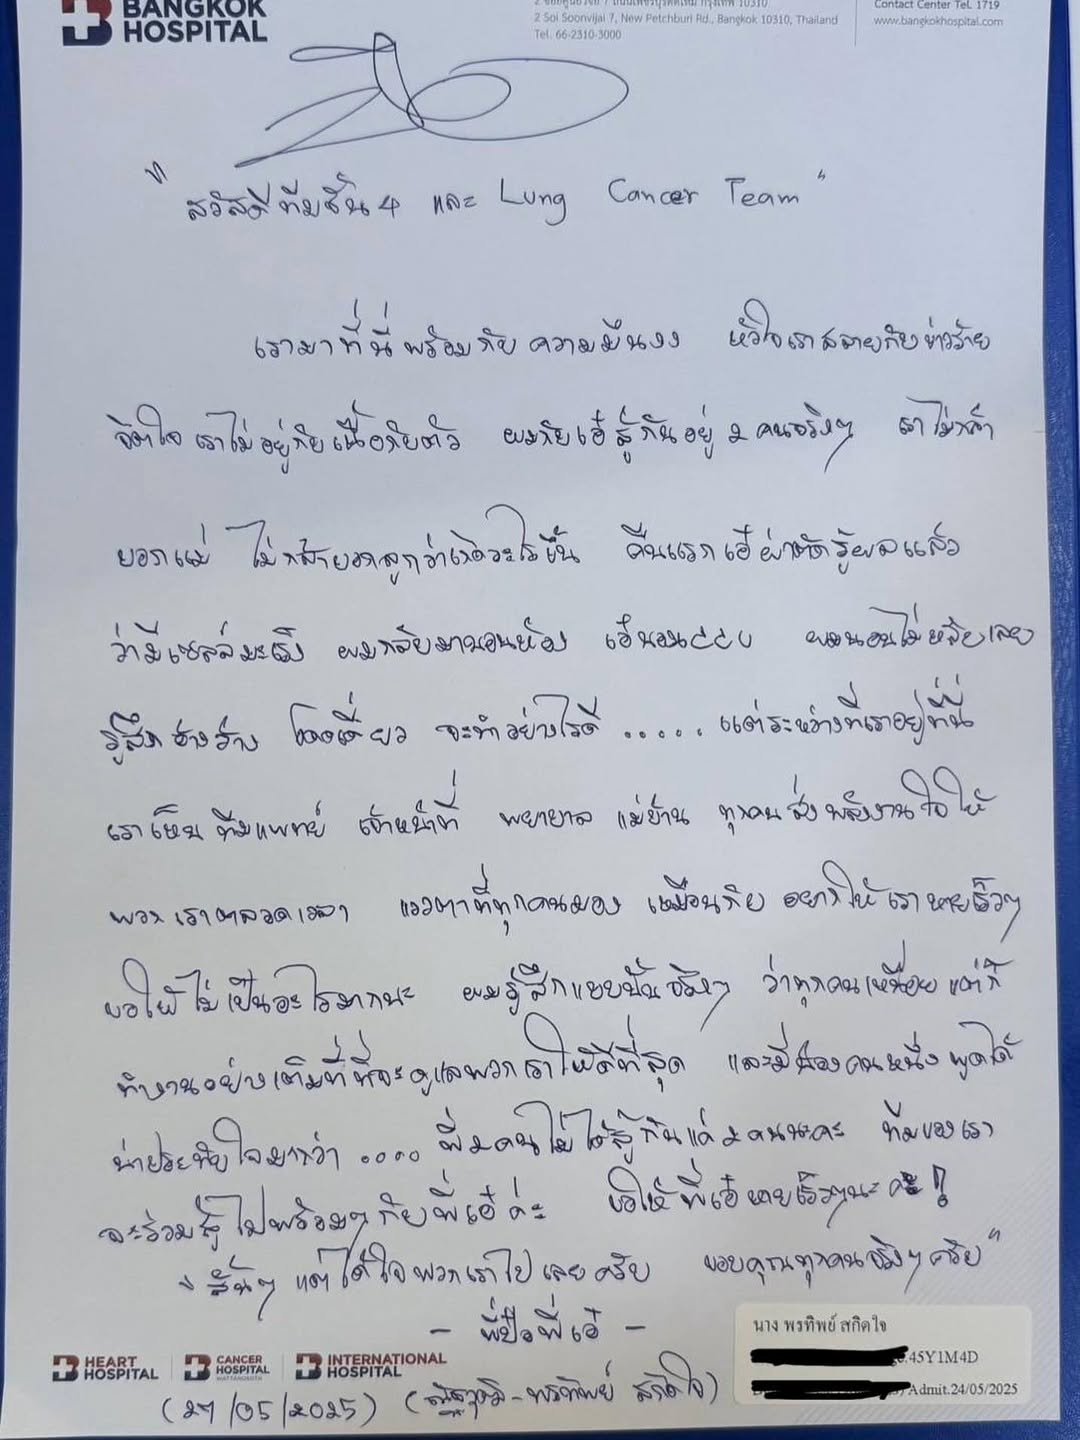 BANGKOK
HOSPITAL
2 Soi Soonvijai 7, New Petchburi Rd., Bangkok 10310, Thailand
Tel. 66-2310-3000
Contact Center Tel. 1719
www.bangkokhospital.com
" สวัสดีทีมชั้น 4 และ Lung Cancer Team "
เรามาที่นี่พร้อมกับความมึนงง หัวใจเราสลายกับข่าวร้าย
จิตใจเราไม่อยู่กับเนื้อกับตัว ผมกับเอ๋สู้กันอยู่ 2 คนจริงๆ เราไม่กล้า
บอกแม่ ไม่กล้าบอกลูกว่าเกิดอะไรขึ้น คืนแรกเอ๋ผ่าตัดรู้ผลแล้ว
ว่ามีเซลล์มะเร็ง ผมกลับมานอนห้อง เอ๋นอน ccu ผมนอนไม่หลับเลย
รู้สึกอ้างว้าง โดดเดี่ยว จะทำอย่างไรดี ..... แต่ระหว่างที่เราอยู่ที่นี่
เราเห็นทีมแพทย์ เจ้าหน้าที่ พยาบาล แม่บ้าน ทุกคนส่งพลังงานใจให้
พวกเราตลอดเวลา แววตาที่ทุกคนมอง เหมือนกับ อยากให้เราหายเร็วๆ
ขอให้ไม่เป็นอะไรมากนะ ผมรู้สึกแบบนั้นจริงๆ ว่าทุกคนเหนื่อยแต่ก็
ทำงานอย่างเต็มที่ที่จะดูแลพวกเราให้ดีที่สุด และมีน้องคนหนึ่งพูดได้
น่าประทับใจมากว่า .... พี่ 2 คนไม่ได้สู้กันแค่ 2 คนนะคะ ทีมของเรา
จะร่วมสู้ไปพร้อมๆ กับพี่เอ๋ค่ะ ขอให้พี่เอ๋หายเร็วๆนะคะ !
" สั้นๆ แต่ได้ใจพวกเราไปเลยครับ ขอบคุณทุกคนจริงๆ ครับ "
- พี่ป๊อพี่เอ๋ -
นาง พรทิพย์ สกิดใจ
45Y1M4D
Admit.24/05/2025
HEART
HOSPITAL
CANCER
HOSPITAL
WATTANOSOTH
INTERNATIONAL
HOSPITAL
(27/05/2025) (ณัฐวุฒิ - พรทิพย์ สกิดใจ)